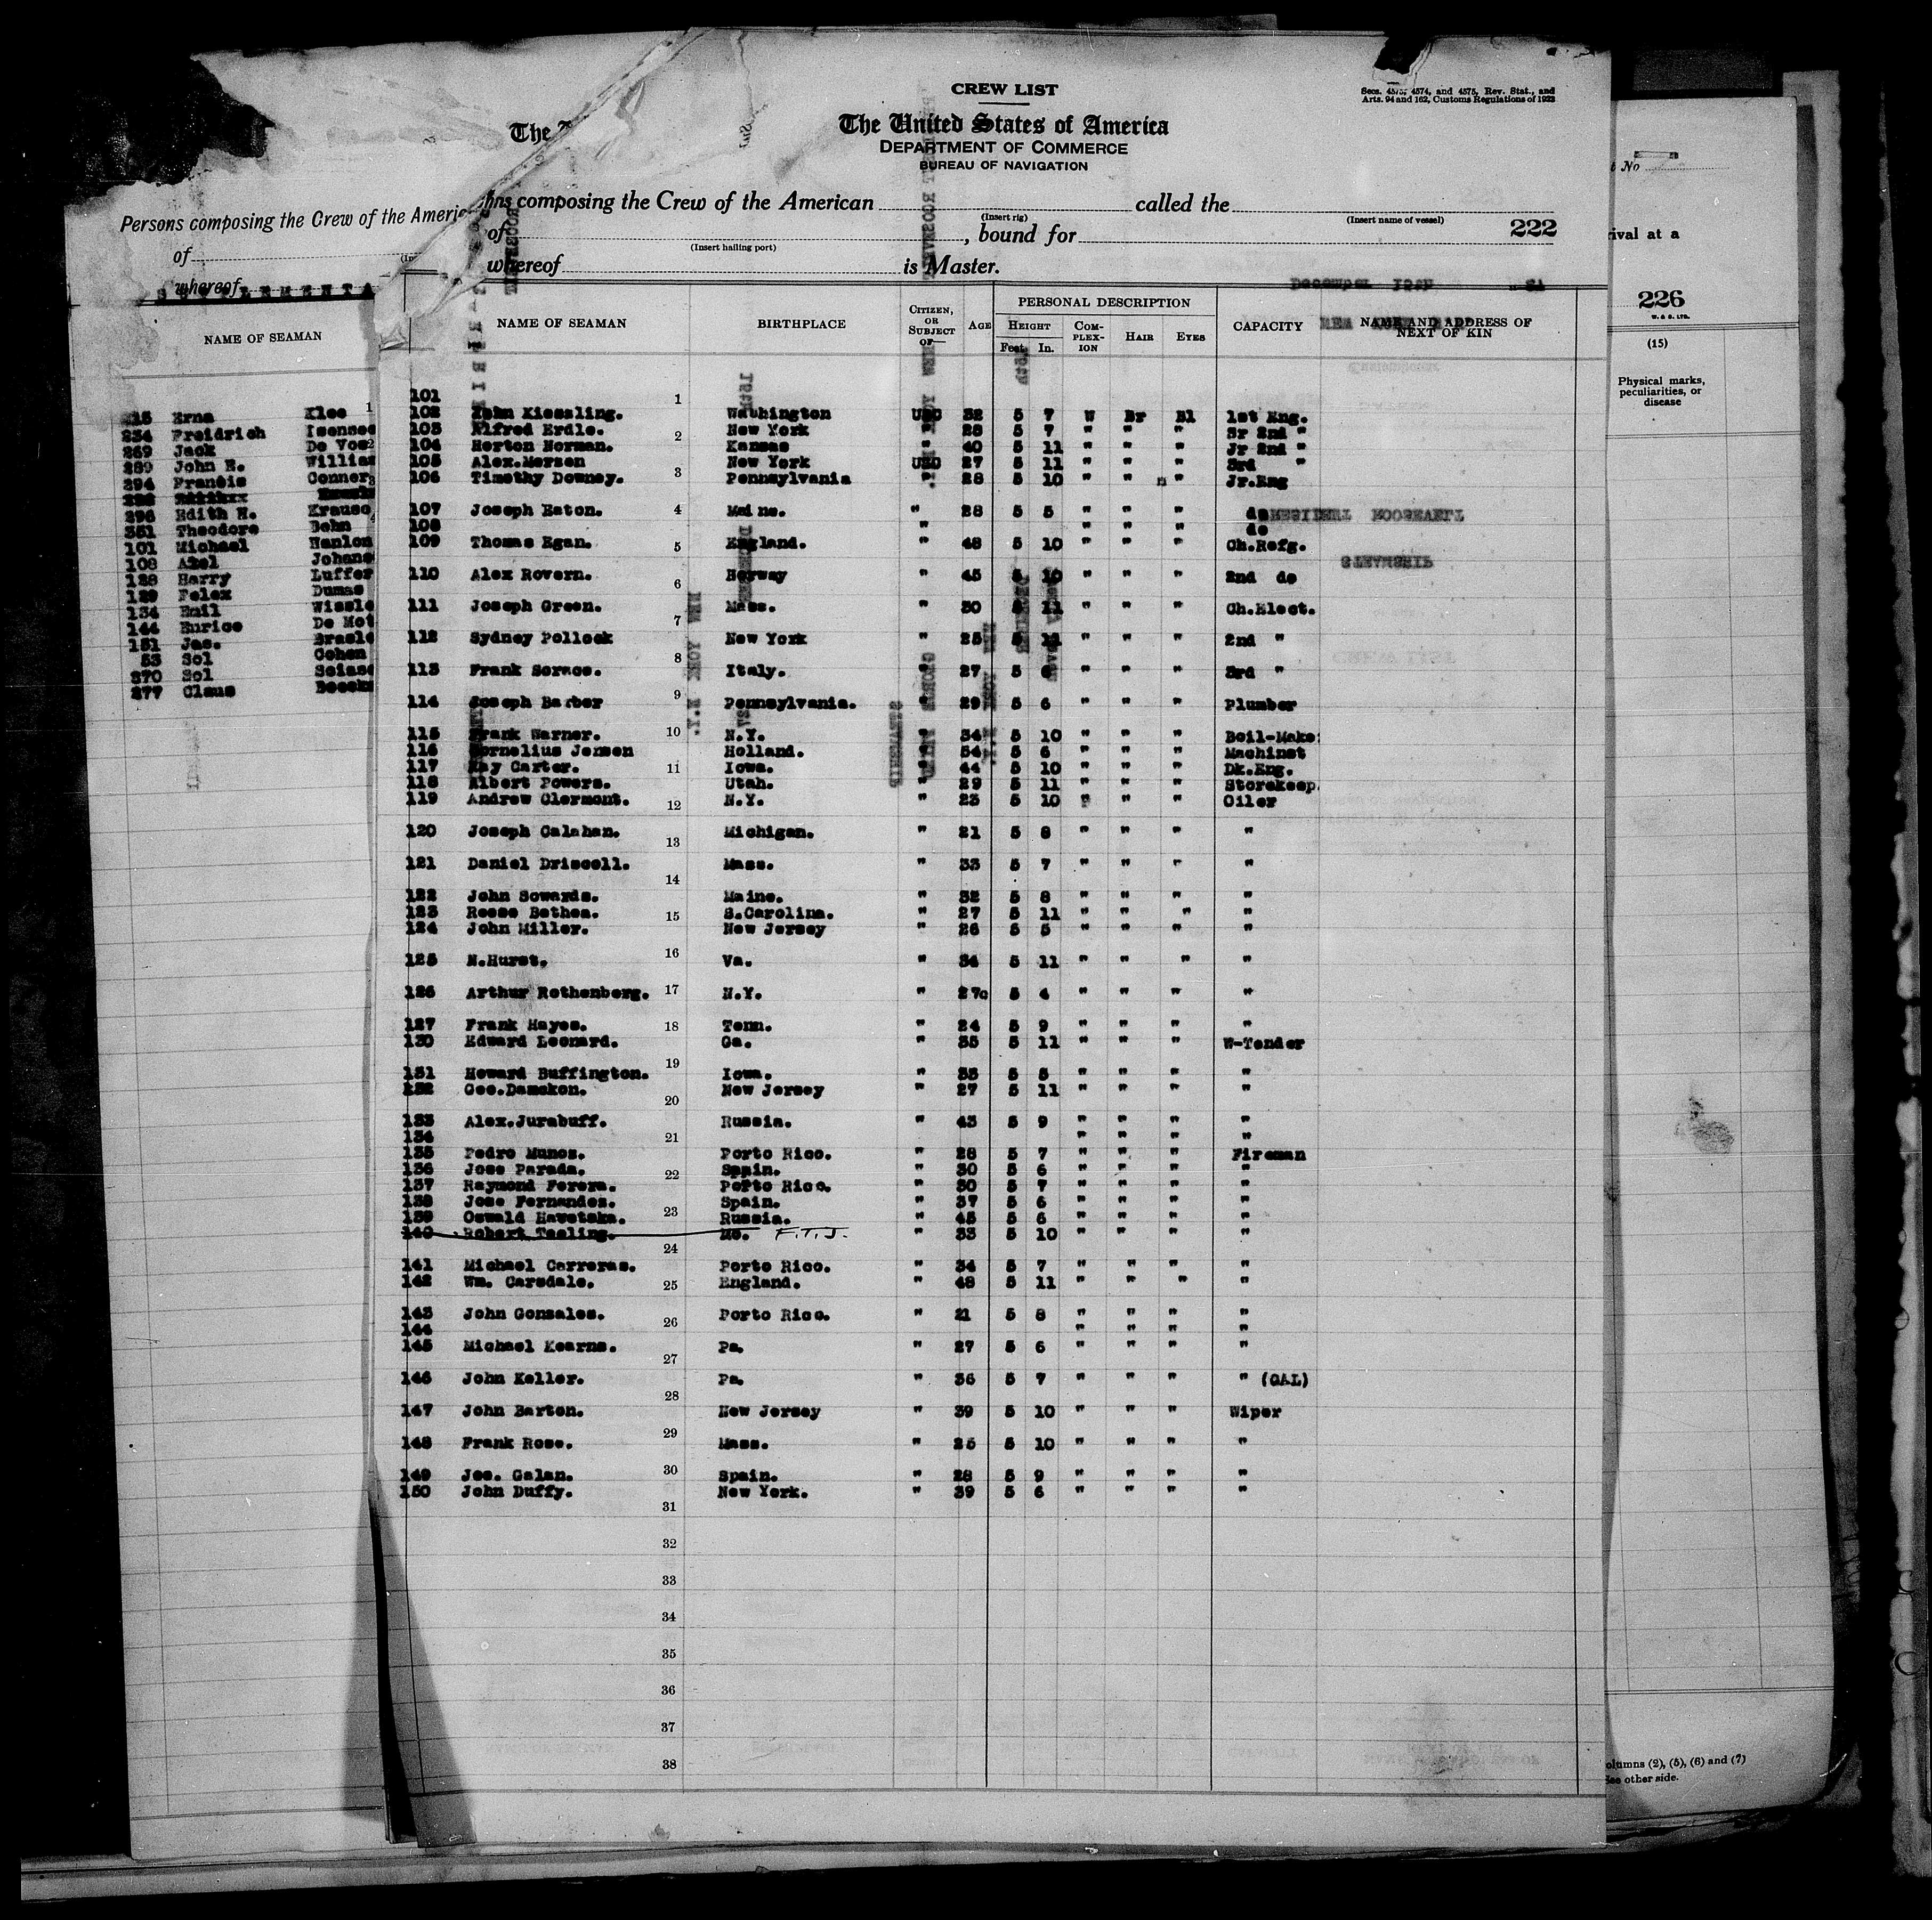 CREW LIST
Secs. 4573, 4574, and 4575, Rev. Stat., and
Arts. 94 and 162, Customs Regulations of 1923
The United States of America
DEPARTMENT OF COMMERCE
BUREAU OF NAVIGATION
composing the Crew of the American called the
(Insert rig) (Insert name of vessel)
of , bound for 222
(Insert hailing port)
whereof is Master.
NAME OF SEAMAN BIRTHPLACE CITIZEN, OR SUBJECT OF— AGE PERSONAL DESCRIPTION CAPACITY NAME AND ADDRESS OF NEXT OF KIN
HEIGHT COMPLEXION HAIR EYES
Feet In.
101
102 John Kiessling. Washington USC 32 5 7 W Br Bl 1st Eng.
103 Alfred Erdle. New York " 28 5 7 " " " Sr 2nd "
104 Horton Norman. Kansas " 40 5 11 " " " Jr 2nd "
105 Alex.Mersen New York USC 27 5 11 " " " 3rd "
106 Timothy Downey. Pennsylvania " 28 5 10 " " " Jr.Eng
107 Joseph Eaton. Maine. " 28 5 5 " " " do
108 " " " " do
109 Thomas Egan. England. " 48 5 10 " " " Ch.Refg.
110 Alex Rovern. Norway " 45 5 10 " " " 2nd do
111 Joseph Green. Mass. " 30 5 11 " " " Ch.Elect.
112 Sydney Pollock New York " 25 5 11 " " " 2nd "
113 Frank Sorace. Italy. " 27 5 6 " " " 3rd "
114 Joseph Barber Pennsylvania. " 29 5 6 " " " Plumber
115 Frank Warner. N.Y. " 34 5 10 " " " Boil-Make
116 Cornelius Jensen Holland. " 54 5 6 " " " Machinst
117 Ray Carter. Iowa. " 44 5 10 " " " Dk.Eng.
118 Albert Powers. Utah. " 29 5 11 " " " Storekeep
119 Andrew Clermont. N.Y. " 23 5 10 " " " Oiler
120 Joseph Calahan. Michigan. " 21 5 8 " " " "
121 Daniel Driscoll. Mass. " 33 5 7 " " " "
122 John Sowards. Maine. " 32 5 8 " " " "
123 Reese Bethea. S.Carolina. " 27 5 11 " " " "
124 John Miller. New Jersey " 26 5 5 " " " "
125 N.Hurst. Va. " 34 5 11 " " " "
126 Arthur Rothenberg. N.Y. " 27c 5 4 " " " "
127 Frank Hayes. Tenn. " 24 5 9 " " " "
130 Edward Leonard. Ga. " 35 5 11 " " " W-Tender
131 Howard Buffington. Iowa. " 33 5 5 " " " "
132 Geo.Damskon. New Jersey " 27 5 11 " " " "
133 Alex.Jurabuff. Russia. " 43 5 9 " " " "
134 " " " "
135 Pedro Munoz. Porto Rico. " 28 5 7 " " " Fireman
136 Jose Parada. Spain. " 30 5 6 " " " "
137 Raymond Ferera. Porto Rico. " 30 5 7 " " " "
138 Jose Fernandes. Spain. " 37 5 6 " " " "
139 Oswald Havetska. Russia. " 45 5 6 " " " "
140 Robert Tesling. Mo. F.T.J. " 33 5 10 " " " "
141 Michael Carreras. Porto Rico. " 34 5 7 " " " "
142 Wm. Carsdale. England. " 48 5 11 " " " "
143 John Gonzales. Porto Rico. " 21 5 8 " " " "
144 " " " "
145 Michael Kearns. Pa. " 27 5 6 " " " "
146 John Keller. Pa. " 36 5 7 " " " " (GAL)
147 John Barton. New Jersey " 39 5 10 " " " Wiper
148 Frank Rose. Mass. " 25 5 10 " " " "
149 Jos. Galan. Spain. " 28 5 9 " " " "
150 John Duffy. New York. " 39 5 6 " " " "
1
2
3
4
5
6
7
8
9
10
11
12
13
14
15
16
17
18
19
20
21
22
23
24
25
26
27
28
29
30
31
32
33
34
35
36
37
38
The
Persons composing the Crew of the Americ
of
whereof
NAME OF SEAMAN
215 Erna Klee
234 Freidrich Isensee
269 Jack De Voe
289 John E. Willia
294 Francis Conner
296 Edith H. Krause
351 Theodore Behn
101 Michael Hanlon
108 Axel Johans
128 Harry Luffer
129 Felex Dumas
134 Emil Wissle
144 Eurico De Mot
151 Jas. Brasle
53 Sol Cohen
270 Sol Seians
277 Claus
t No
rival at a
226
(15)
Physical marks,
peculiarities, or
disease
olumns (2), (5), (6) and (7)
See other side.